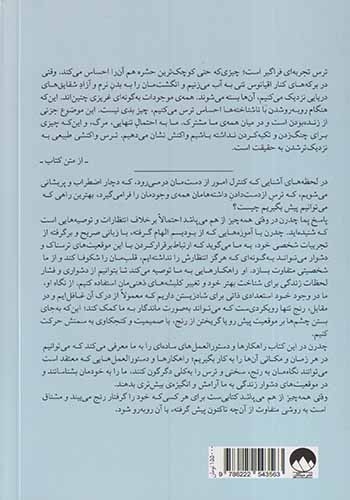 ترس تجربه‌ای فراگیر است؛ چیزی‌که حتی کوچک‌ترین حشره هم آن‌را احساس می‌کند. وقتی
در برکه‌های کنار اقیانوس تنی به آب می‌زنیم و انگشت‌مان را به بدن نرم و آزادِ شقایق‌های
دریایی نزدیک می‌کنیم، آن‌ها بسته می‌شوند. همه‌ی موجودات به‌گونه‌ای غریزی چنین‌اند. این‌که
هنگام روبه‌روشدن با ناشناخته‌ها احساس ترس می‌کنیم، چیز بدی نیست. این موضوع جزئی
از زنده‌بودن است، و در میان همه‌ی ما مشترک. ما به احتمالِ تنهایی، مرگ، و این‌که چیزی
برای چنگ‌زدن و تکیه‌کردن نداشته باشیم واکنش نشان می‌دهیم. ترس واکنشی طبیعی به
نزدیک‌ترشدن به حقیقت است.
ـ از متن کتاب ـ
در لحظه‌های آشنایی که کنترل امور از دست‌مان در‌می‌رود، که دچار اضطراب و پریشانی
می‌شویم، که ترس ازدست‌دادن داشته‌هامان همه‌ی وجودمان را فرامی‌گیرد، بهترین راهی که
می‌توانیم پیش بگیریم چیست؟
پاسخ پما چدرن در وقتی همه‌چیز از هم می‌پاشد احتمالاً برخلاف انتظارات و توصیه‌هایی است
که شنیده‌اید. چدرن با آموزه‌هایی که از بودیسم الهام گرفته، با زبانی صریح و برگرفته از
تجربیات شخصی خود، به ما می‌گوید که ارتباط‌برقرارکردن با این موقعیت‌های ترسناک و
دشوار می‌توانند به‌گونه‌ای که هرگز انتظارش را نداشته‌ایم، قلب‌مان را شکوفا کند و از ما
شخصیتی متفاوت بسازد. او راهکارهایی به ما توصیه می‌کند تا بتوانیم از دشواری و فشار
لحظات زندگی برای شناخت بهتر خود و تغییر کلیشه‌های ذهنی‌مان استفاده کنیم. از نگاه او،
ما در وجود خود استعدادی ذاتی برای شادزیستن داریم که معمولاً از درک آن غافل‌ایم و در
مقابل، رنج تنها رویکردی‌ست که می‌تواند به‌صورت ماندگار به ما کمک کند؛ این‌که به‌جای
بستن چشم‌ها بر موقعیت پیش رو یا گریختن از رنج، با صمیمیت و کنجکاوی به سمتش حرکت
کنیم.
چدرن در این کتاب راهکارها و دستورالعمل‌های ساده‌ای را به ما معرفی می‌کند که می‌توانیم
در هر زمان و مکانی آن‌ها را به کار بگیریم؛ راهکارها و دستورالعمل‌هایی که معتقد است
می‌توانند نگاه‌مان به رنج، سختی و ترس را به‌کلی دگرگون کنند، ما را به خودمان بشناسانند و
در موقعیت‌های دشوار زندگی به ما آرامش و انگیزه‌ی بیش‌تری بدهند.
وقتی همه‌چیز از هم می‌پاشد کتابی‌ست برای هر کسی‌که خود را گرفتار رنج می‌بیند و مشتاق
است به روشی متفاوت از آن‌چه تاکنون پیش گرفته، با آن روبه‌رو شود.
9 786222 543563